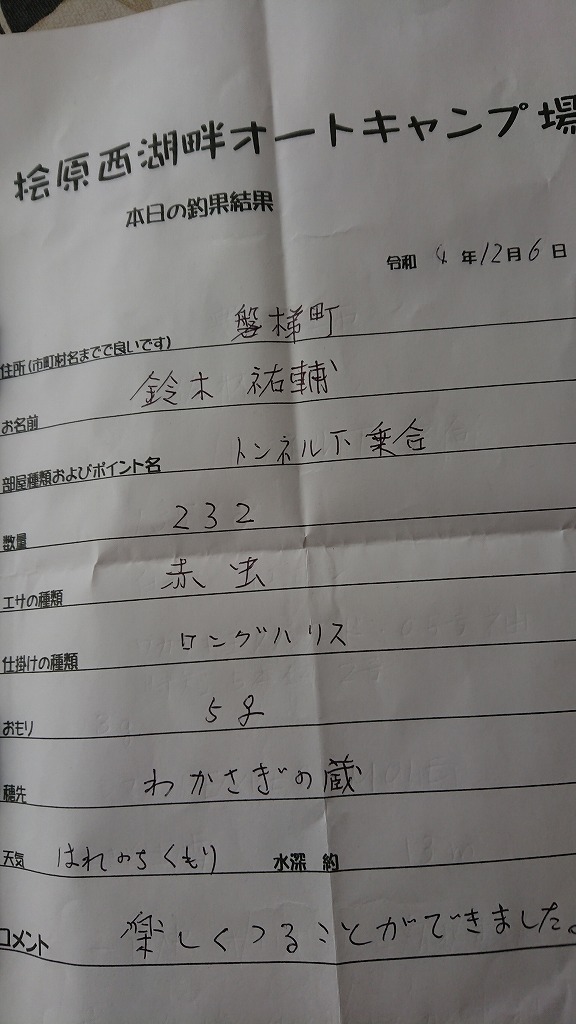 桧原西湖畔オートキャンプ場
本日の釣果結果
令和 4 年 12月 6 日
住所(市町村名までで良いです) 磐梯町
お名前 鈴木 祐輔
部屋種類およびポイント名 トンネル下 乗合
数量 232
エサの種類 赤虫
仕掛けの種類 ロングハリス
おもり 5g
穂先 わかさぎの蔵
天気 はれのちくもり 水深 約
コメント 楽しくつることができました。